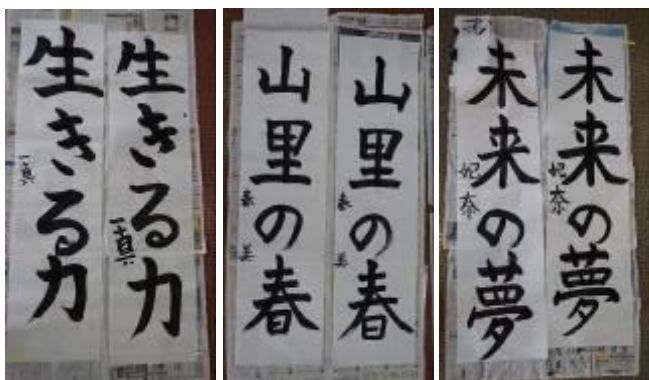 生きる力
一真
生きる力
一真
山里の春
美
山里の春
美
未来の夢
妃奈
未来の夢
妃奈